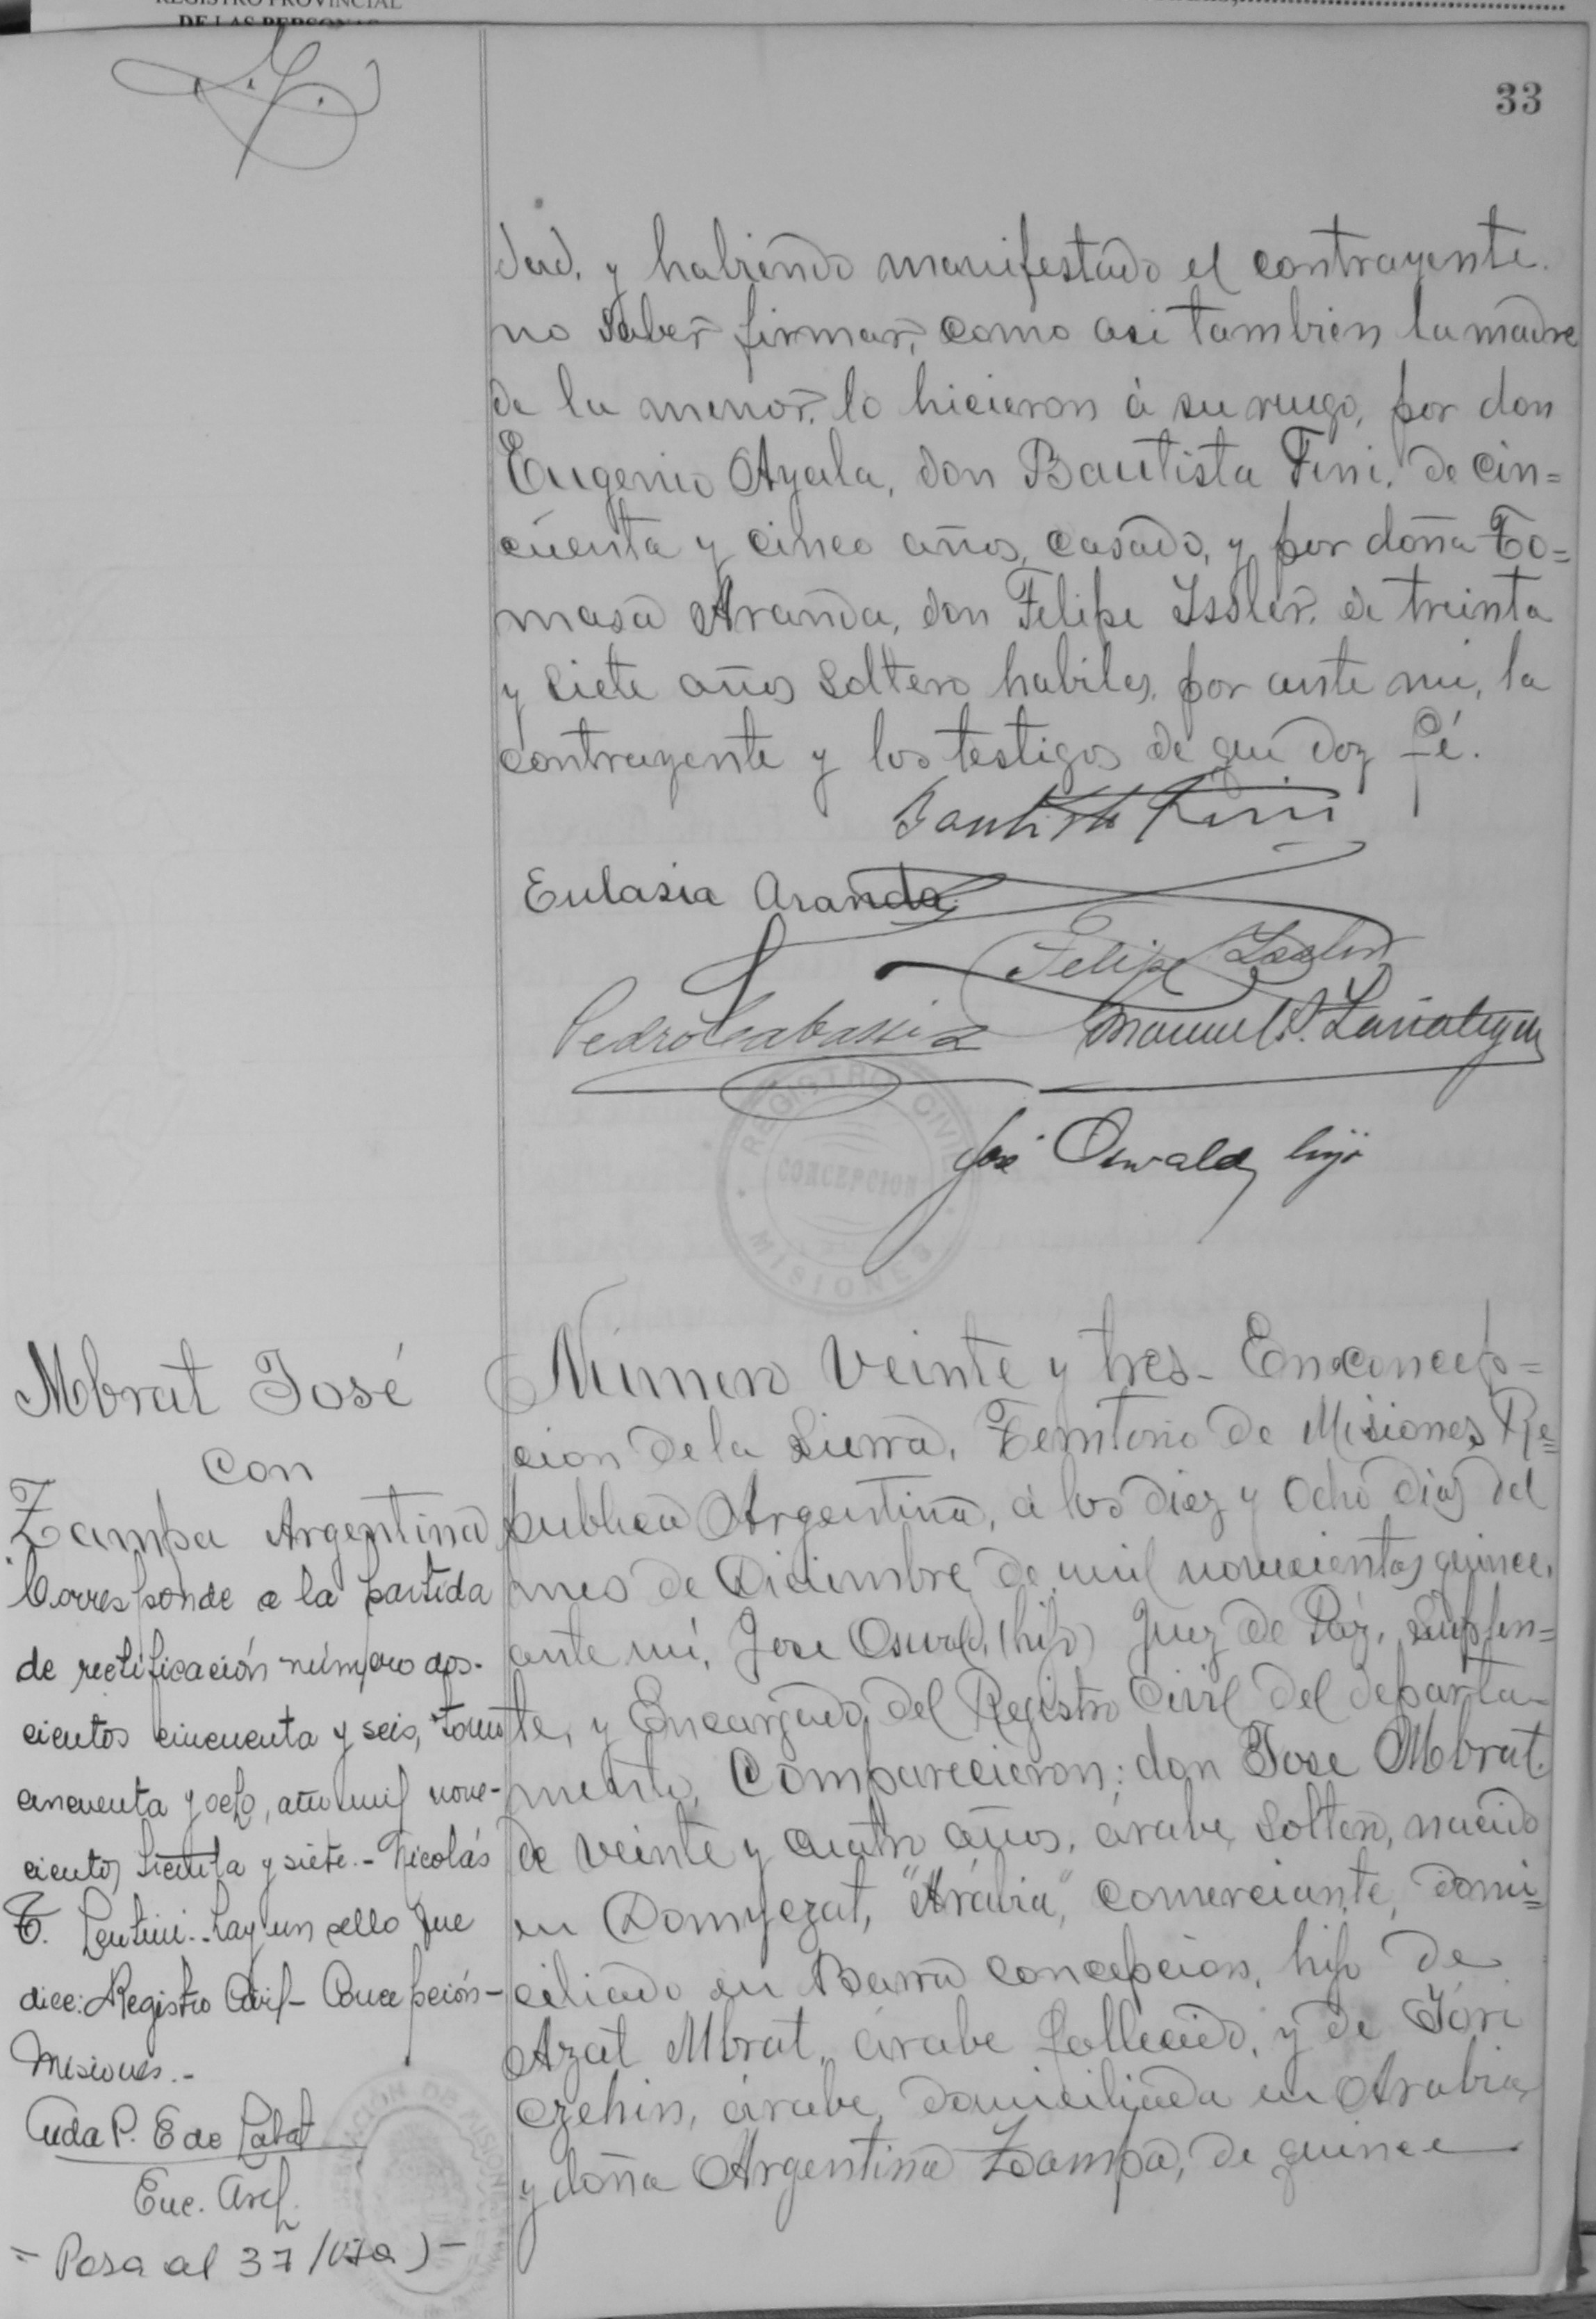 REGISTRO PROVINCIAL
DE LAS PERSONAS
33
dad, y habiendo manifestado el contrayente.
no saber firmar, como asi tambien la madre
de la menor, lo hicieron á su ruego, por don
Eugenio Ayala, don Bautista Fini, de cin=
cuenta y cinco años, casado, y por doña To=
masa Aranda, don Felipe Issler, de treinta
y siete años soltero habiles, por ante mi, la
contrayente y los testigos de que doy fé.
Bautista Fini
Eulasia Aranda
Felipe Issler
Pedro Manuel
José Oswald hijo
REGISTRO CIVIL
CONCEPCION
MISIONES
Mbrat José
con
Zampa Argentina
Corresponde a la partida
de rectificación número dos-
cientos cincuenta y seis, tomo
cincuenta y ocho, año mil nove-
cientos y siete.- Nicolás
T. Lentini.- hay un sello que
dice: Registro Civil- Concepción-
Misiones.-
P. E de
Enc. Arch.
= Pasa al 37 (vta) -
Número Veinte y tres- En concep=
cion de la Sierra, Territorio de Misiones, Re=
publica Argentina, á los diez y ocho dias del
mes de Diciembre de mil novecientos quince,
ante mi, Jose Oswald, (hijo) Juez de Paz, suplen=
te, y Encargado del Registro Civil del departa-
mento, Comparecieron: don Jose Mbrat.
de veinte y cuatro años, árabe, soltero, nacido
en Domyezat, "Arabia", comerciante, domi=
ciliado en Barra Concepcion, hijo de
Azat Mbrat, árabe fallecido, y de Tóri
Ezehin, árabe, domiciliada en Arabia,
y doña Argentina Zampa, de quince